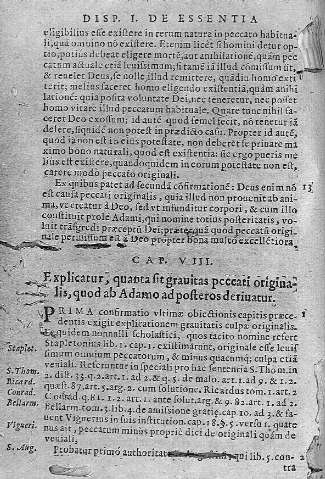 DISP. I. DE ESSENTIA
eligibilius esse existere in rerum natura in peccato habitua-
li, quā omnino nō existere. Etenim licèt si homini detur op-
tio, potius debeat eligere mortē, aut anihilatione, quàm pec-
catum actuale etiā leuissimum; si tamē iā illud comissum sit,
& reuelet Deus, se nolle illud remittere, quādiu homo exti-
terit; melius faceret homo eligendo existentiā, quàm anihi
lationē: quia posita voluntate Dei, nec teneretur, nec posset
homo vitare illud peccatum habituale. Quare tunc nihil fa-
ceret Deo exosum; id autē quod semel fecit, nō tenetur iā
delere, siquidē non potest in prædicto casu. Propter id autē,
quod iā non est in eius potestate, non deberet se priuare ma
ximo bono naturali, quod est existentia: sic ergo pueris me
lius est existere, quandoquidem in eorum potestate non est,
carere modo peccato originali.
Ex quibus patet ad secundā cōfirmationē: Deus enim nō
est causa peccati originalis, quia illud non prouenit ab ani-
ma, vt creatur à Deo, sed vt infunditur corpori, & cum illo
constituit prole Adami, qui nomine totius posteritatis, vo-
luit trāsgredi præceptū Dei; præterquā quod peccati origi-
nale permissum est à Deo propter bona multo excellētiora.
13
CAP. VIII.
Explicatur, quanta sit grauitas peccati origina-
lis, quod ab Adamo ad posteros deriuatur.
PRIMA confirmatio vltimæ obiectionis capitis præce-
dentis exigit explicationem grauitatis culpæ originalis.
Et quidem nonnulli scholastici, quos tacito nomine refert
Stapletonius lib. 1. cap. 1. existimārūt, originale esse leuis
simum omnium peccatorum, & minus quacumq; culpa etiā
veniali. Referuntur in speciali pro hac sententia S. Thom. in
2. dist. 33. q. 2. art. 1. ad 2. & q. 5. de malo. art. 1. ad 9. & 1. 2.
quæst. 87. art. 5. arg. 2. cum solutione. Ricardus tom. 1. art. 2
Conrad. q. 81. 1. 2. art. 1. ante solut. arg. & q. 82. art. 1. ad 2.
Bellarm. tom. 3. lib. 4. de amissione gratiæ, cap. 10. ad 3. & fa-
uent Viguerius in suis institution. cap. 18. §. 5. versu 1. quate
nus ait, peccatum minus propriè dici de originali quàm de
veniali.
1
Staplet.
S. Thom.
Ricard.
Conrad.
Bellarm.
Vigueri.
S. Aug.
Probatur primò authoritate qui lib. 5. con-
2
tra